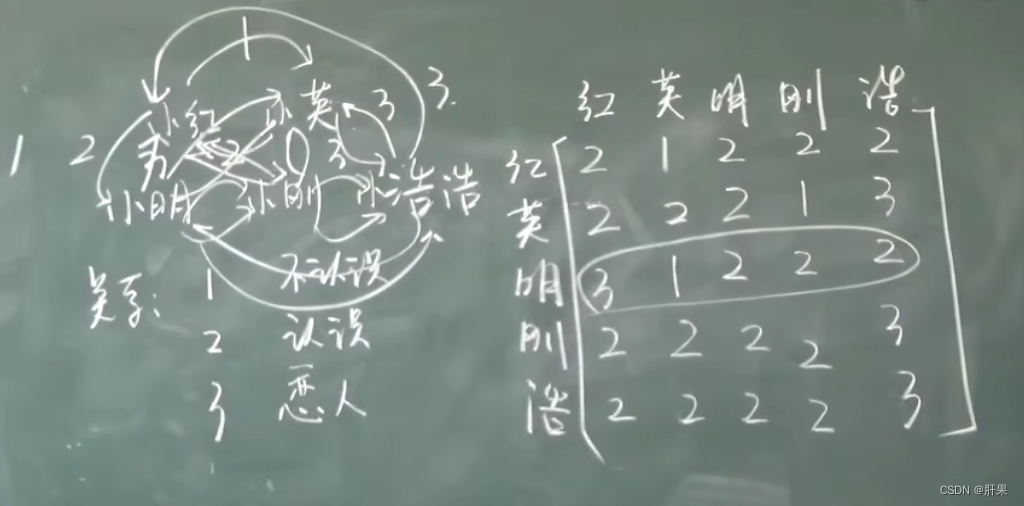 1
3
小红 小英 3
1 2 2 3
小明 小刚 小浩浩
关系: 1 不认识
2 认识
3 恋人
红 英 明 刚 浩
红 2 1 2 2 2
英 2 2 2 1 3
明 3 1 2 2 2
刚 2 2 2 2 3
浩 2 2 2 2 3
CSDN @肝果